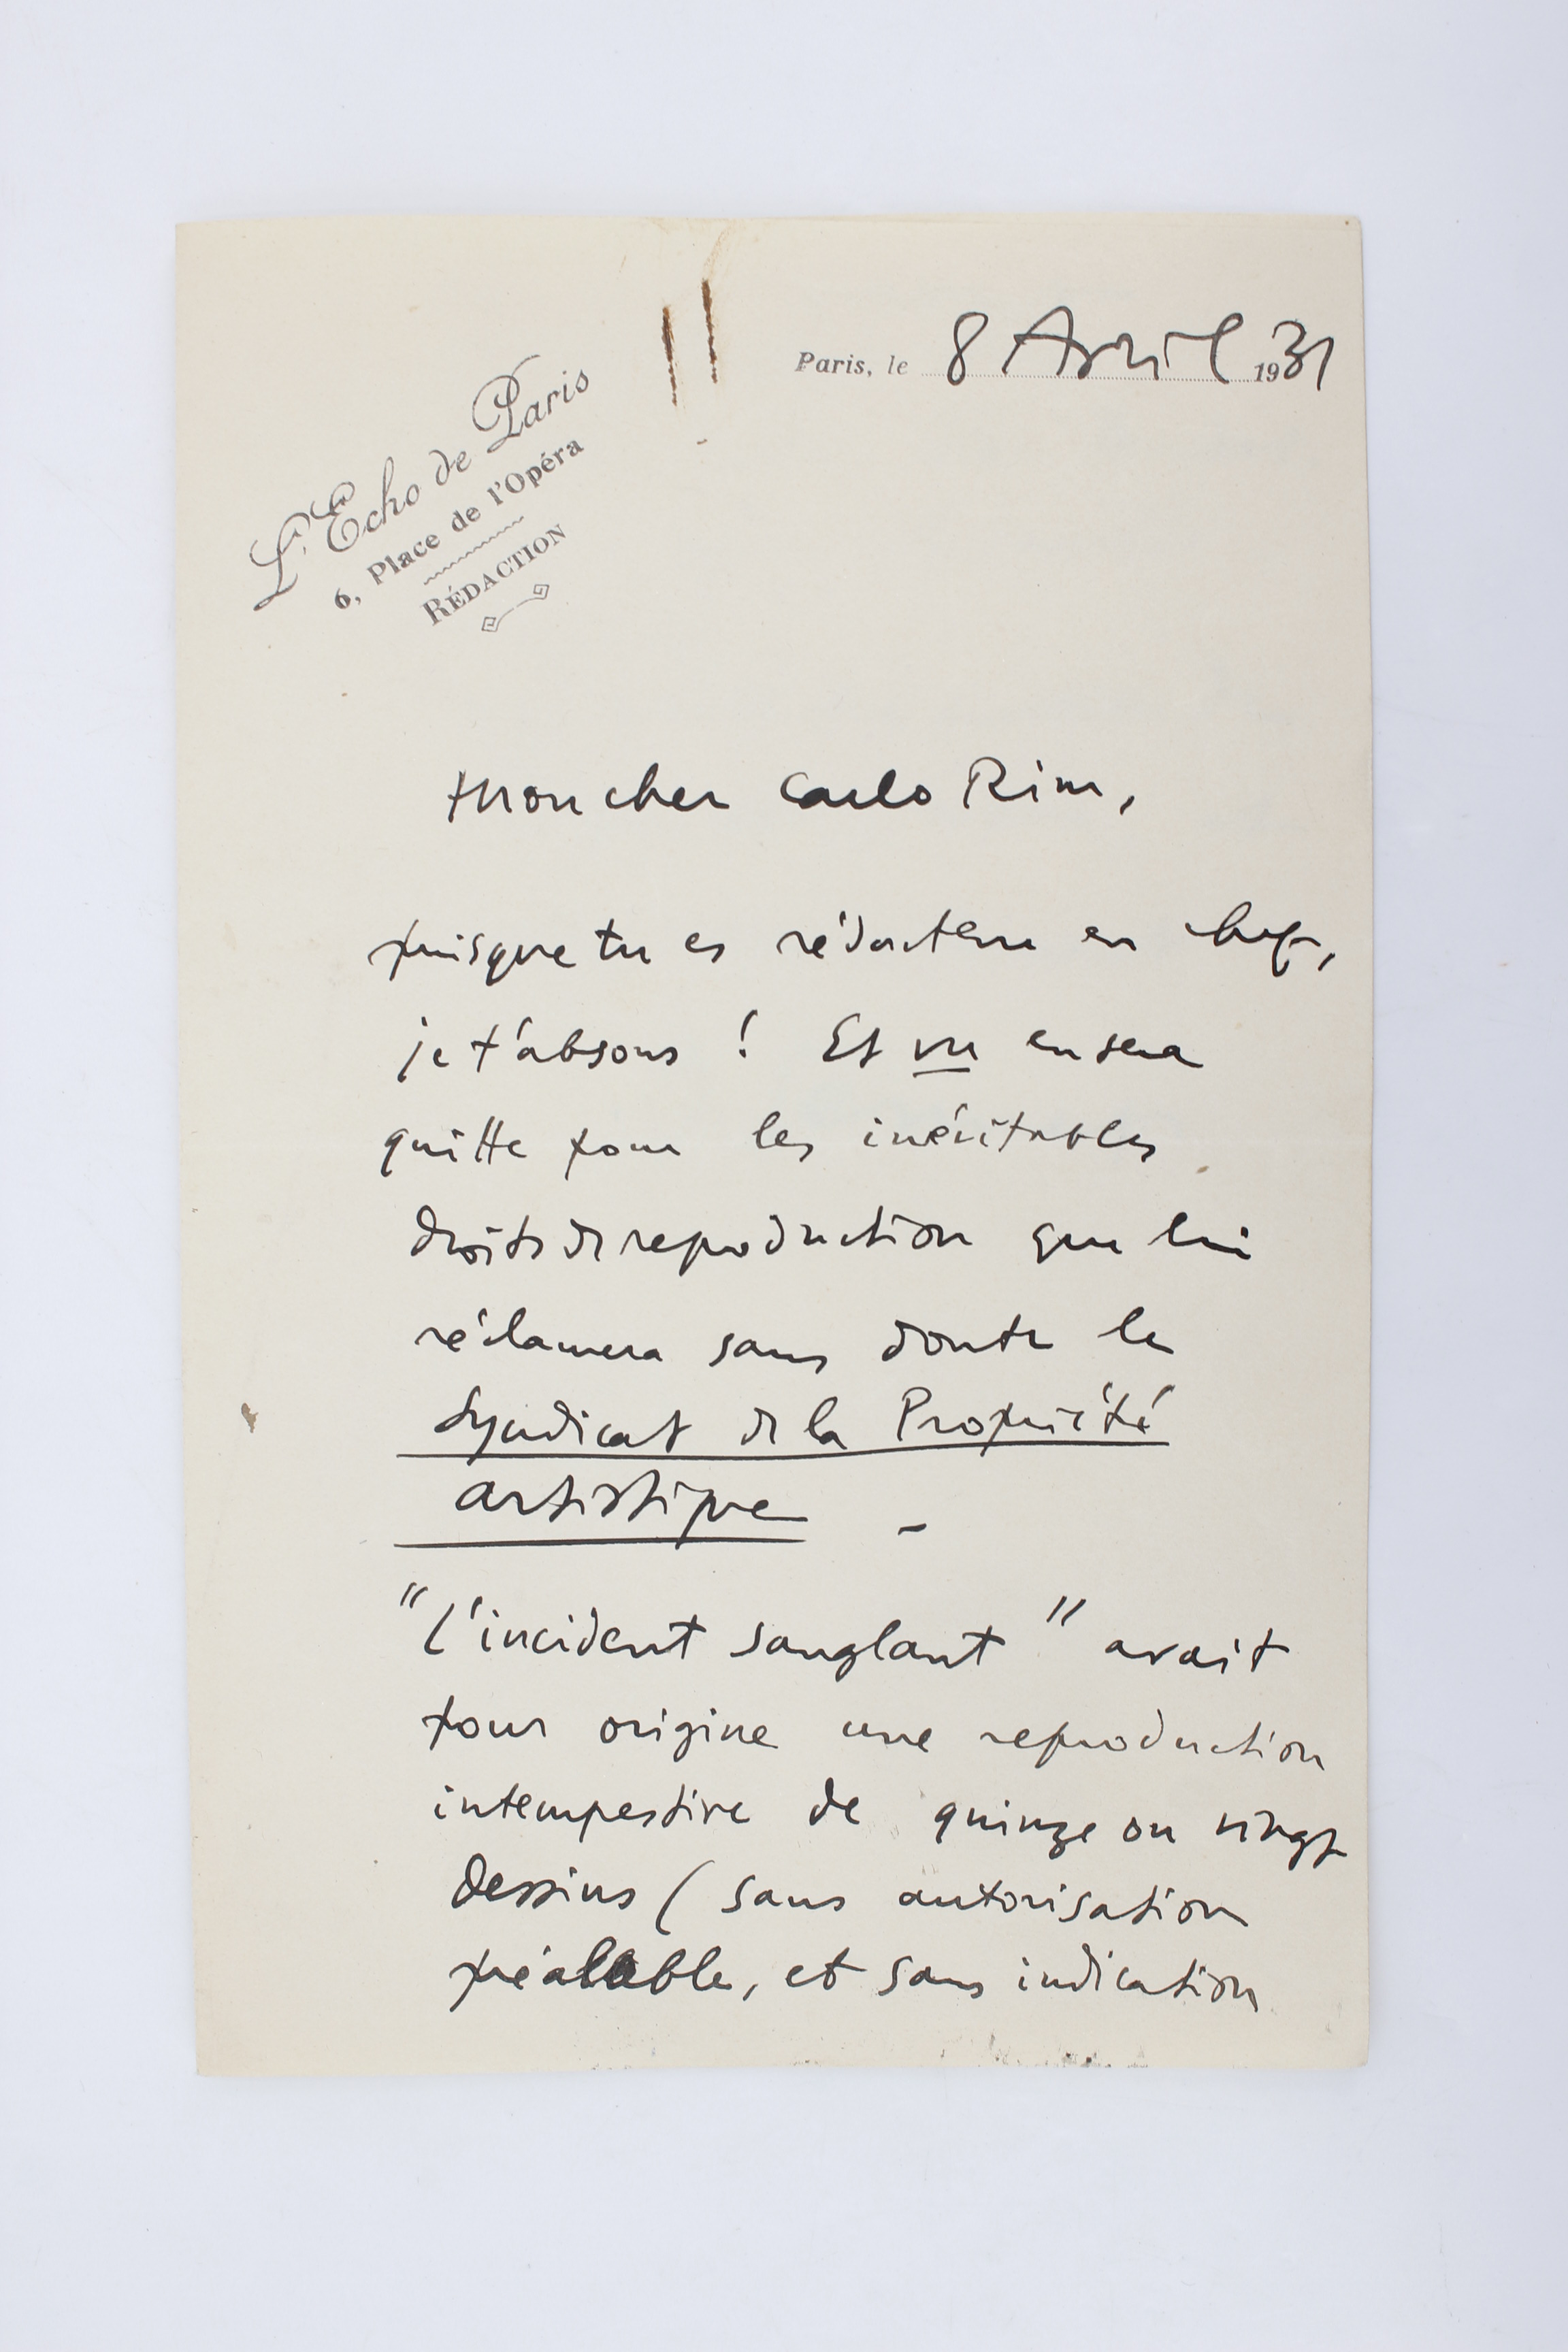 L'Echo de Paris
6, Place de l'Opéra
RÉDACTION
Paris, le 8 Avril 1931
Mon cher Carlo Rim,
puisque tu es rédacteur en chef,
je t'absous ! Et vu en sera
quitte pour les inévitables
droits de reproduction que lui
réclamera sans doute le
Syndicat de la Propriété
artistique -
"L'incident sanglant" avait
pour origine une reproduction
intempestive de quinze ou vingt
dessins (sans autorisation
préalable, et sans indication